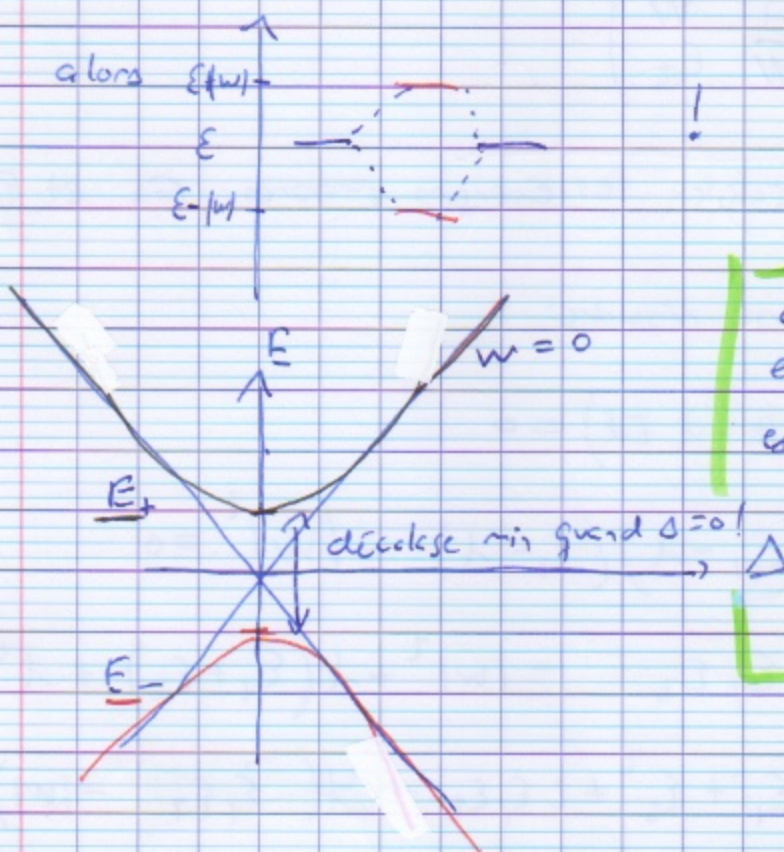 alors
ε+|w|
ε
!
ε-|w|
E
w = 0
E+
décalage min quand Δ=0!
Δ
E-